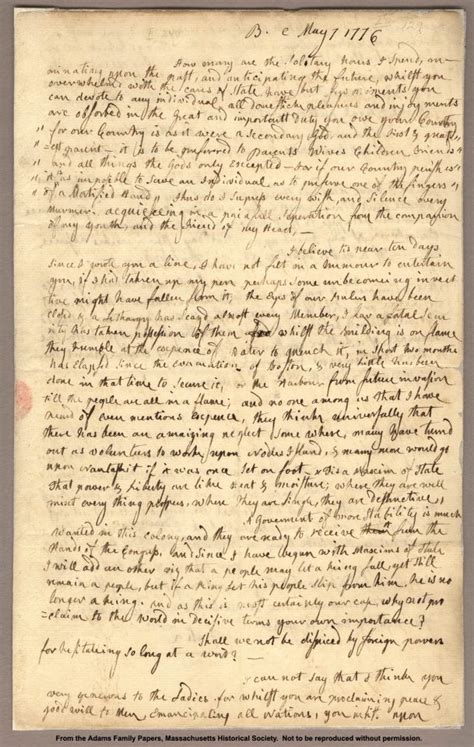 B e May 7 1776
How many are the solitary hours I spend, ru-
minating upon the past, and anticipating the future, whilst you
overwhelmd with the cares of State, have but few moments you
can devote to any individual. all domestick pleasures and injoyments
are absorbed in the great and important duty you owe your Country
" for our Country is as it were a Secondary God, and the first & great-
" est parent. it is to be preferred to parents, Wives, Children, Friends
" and all things the Gods only excepted. For if our Country perish
" it is as impossible to save an Individual, as to preserve one of the fingers
" of a Mortified Hand. thus do I supress every wish, and silence every
Murmer, acquiesceing in a painfull Seperation from the companion
of my youth, and the Friend of my Heart,
I believe tis near ten days
since I wrote you a line, I have not felt in a Humour to entertain
you, if I had taken up my pen perhaps some unbecomeing invec-
tive might have fallen from it, the Eyes of our Rulers have been
closed & a Lethargy has seazd almost every Member, I fear a fatal Secu-
rity has taken possession of them. whilst the Building is on flame
they tremble at the expence of water to quench it, in short two months
has elapsed since the evacuation of Boston, & very little has been
done in that time to secure it, or the Harbour from future invasion
till the people are all in a flame; and no one among us that I have
heard of even mentions expence, they think universally that
there has been an amaizing neglect some where, many have turnd
out as volunteers to work upon Nodles Island, & many more would go
upon Nantaskit if it was once set on foot. tis a Maxim of State
that power & Liberty are like Heat & moisture; where they are well
mixt every thing prospers, where they are single, they are destructive,
A Goverment of more Stability is much
wanted in this colony, and they are ready to receive it from the
Hands of the Congress, and since I have begun with Maxims of State
I will add an other viz that a people may let a king fall, yet still
remain a people, but if a king let his people slip from him, he is no
longer a king. and as this is most certainly our case, why not pro-
claim to the World in decisive terms your own importance?
Shall we not be dispiced by foreign powers
for hesitateing so long at a word?
I can not say that I think you
very generous to the Ladies, for whilst you are proclaiming peace &
good will to Men, Emancipating all Nations, you insist upon
From the Adams Family Papers, Massachusetts Historical Society. Not to be reproduced without permission.